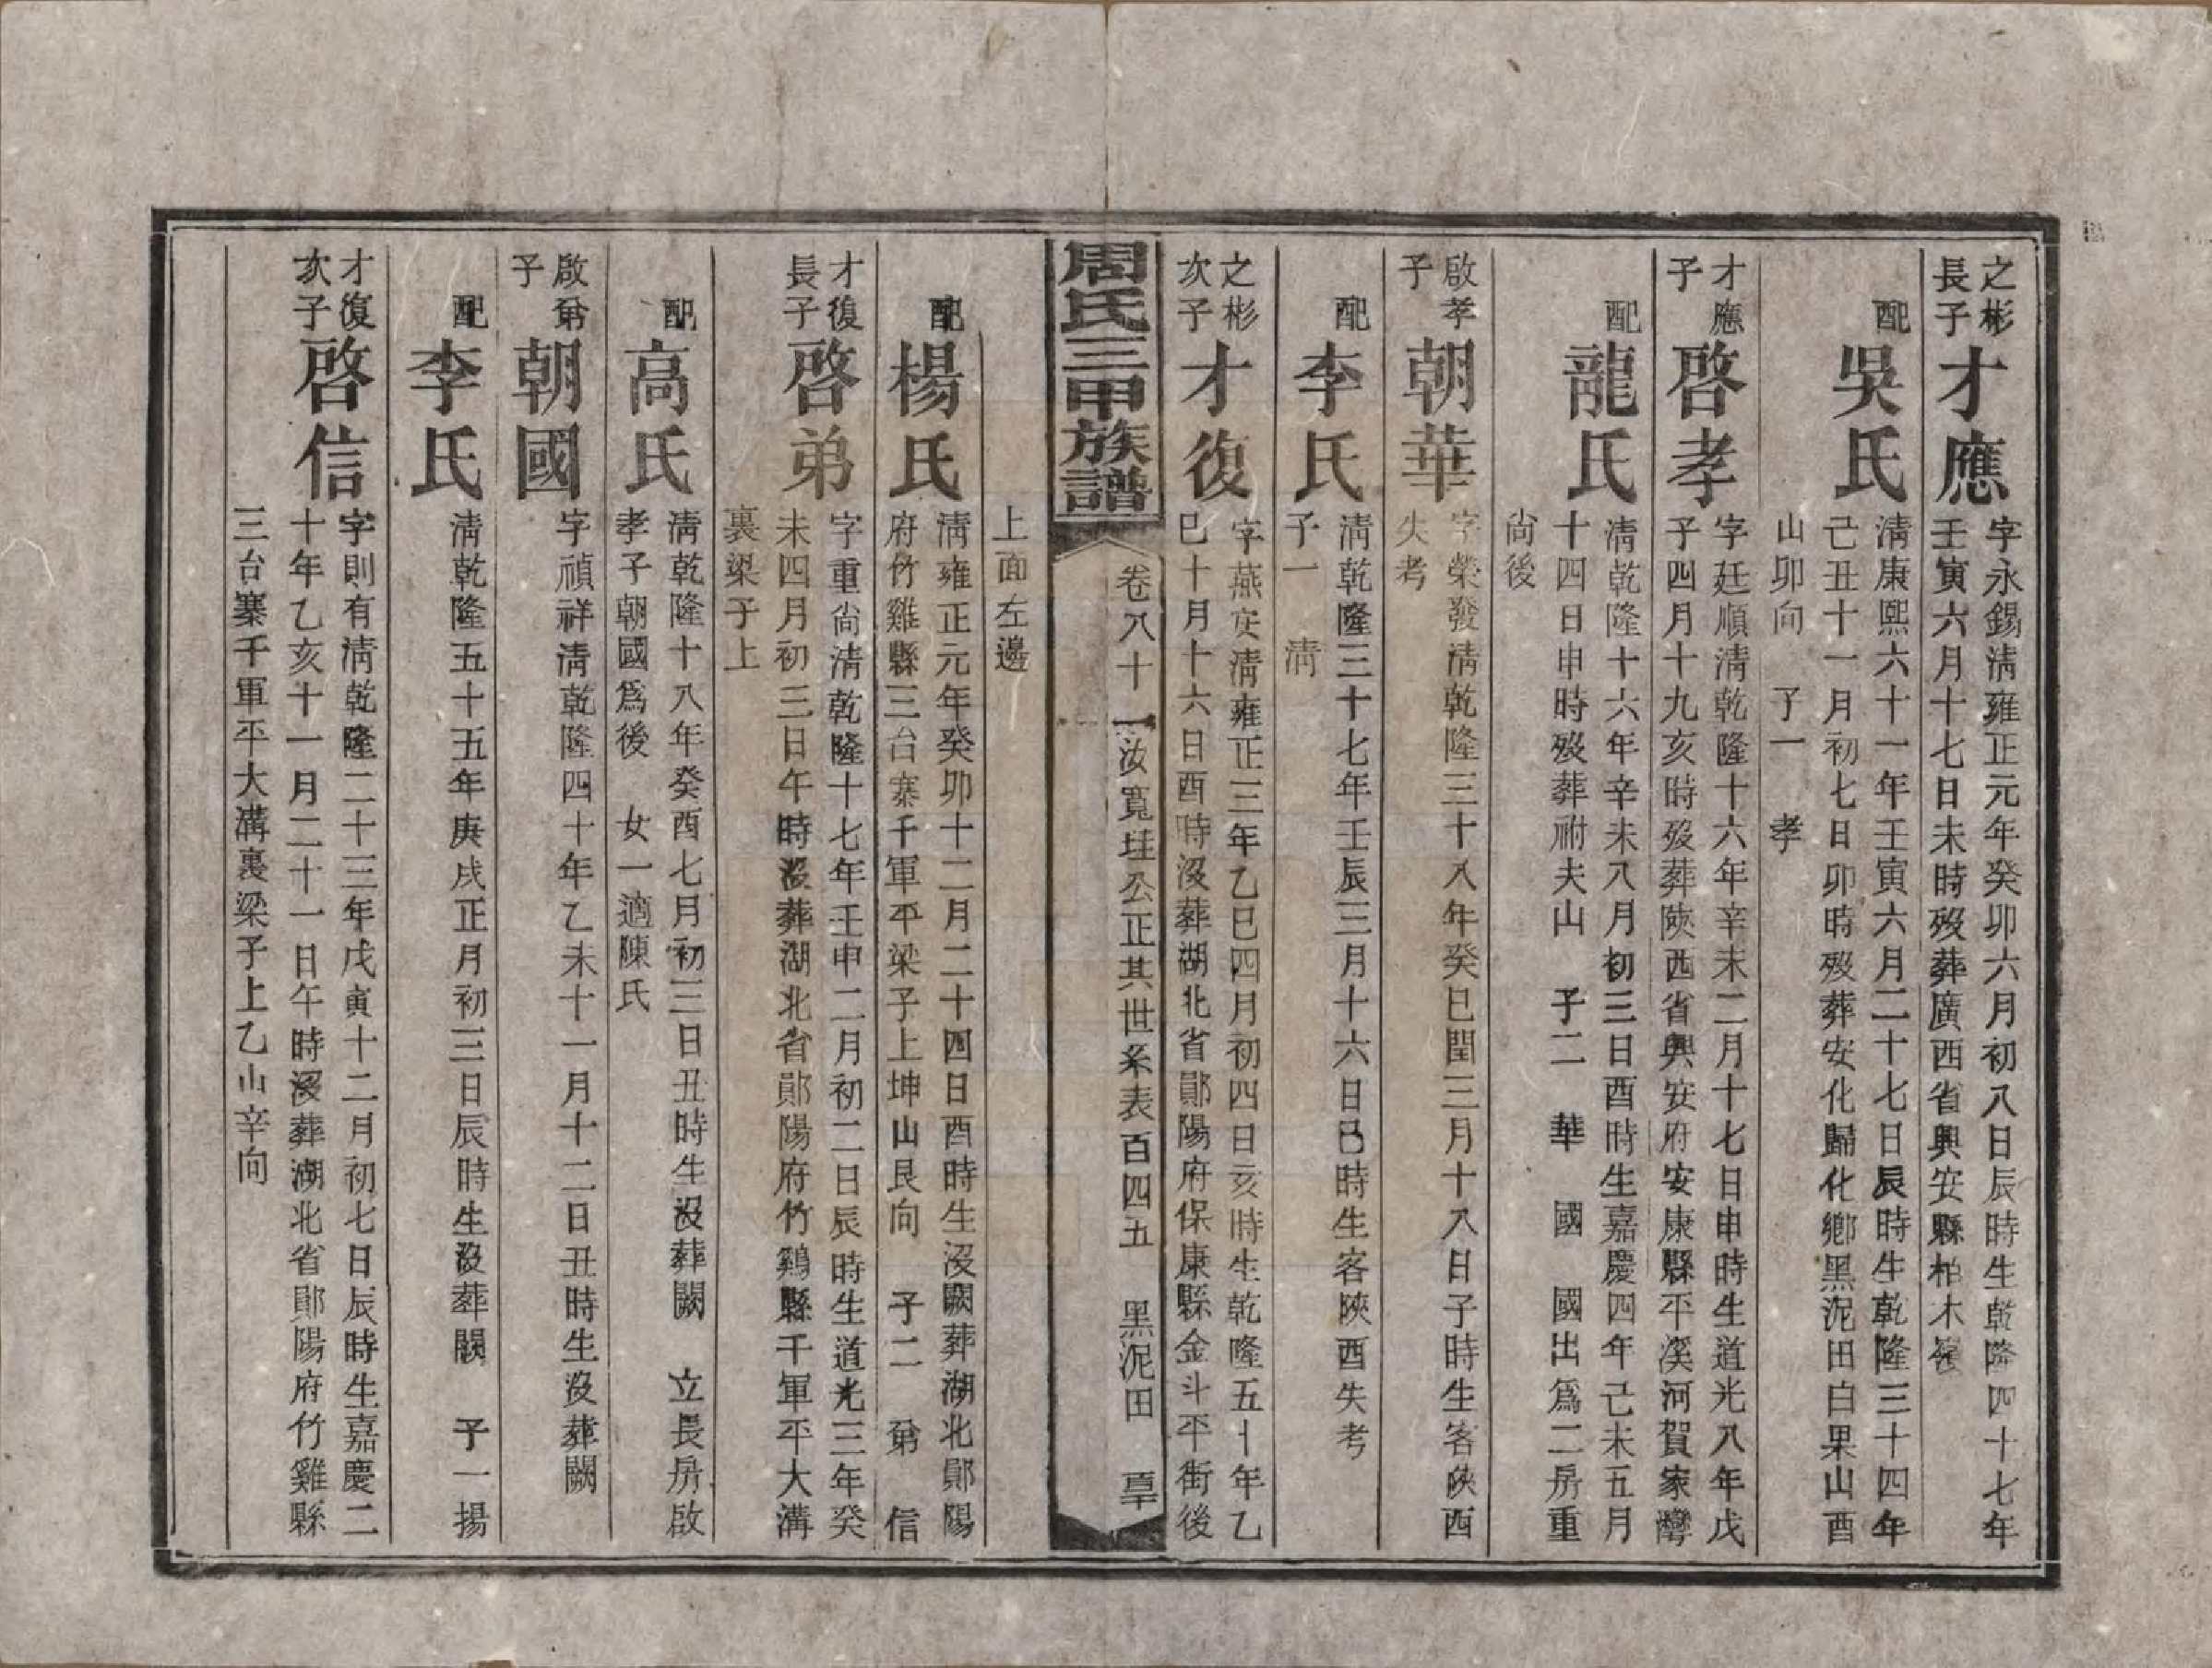 之彬
長子
才應
字永錫淸雍正元年癸卯六月初八日辰時生乾隆四十七年
壬寅六月十七日未時歿葬廣西省興安縣柏木
配
吳氏
淸康熙六十一年壬寅六月二十七日辰時生乾隆三十四年
己丑十一月初七日卯時歿葬安化歸化鄉黑泥田白果山酉
山卯向 子一 孝
才應
子
啓孝
字廷順淸乾隆十六年辛未二月十七日申時生道光八年戊
子四月十九亥時歿葬陝西省興安府安康縣平溪河賀家灣
配
龍氏
淸乾隆十六年辛未八月初三日酉時生嘉慶四年己未五月
十四日申時歿葬祔夫山 子二 華 國 國出爲二房重
尙後
啟孝
子
朝華
字榮發淸乾隆三十八年癸巳閏三月十八日子時生客陝西
失考
配
李氏
淸乾隆三十七年壬辰三月十六日巳時生客陝西失考
子一 淸
之彬
次子
才復
字燕安淸雍正三年乙巳四月初四日亥時生乾隆五十年乙
巳十月十六日酉時沒葬湖北省鄖陽府保康縣金斗平街後
周氏三甲族譜
卷八十一汝寬垤公正其世系表百四五 黑泥田
上面左邊
配
楊氏
淸雍正元年癸卯十二月二十四日酉時生沒闕葬湖北鄖陽
府竹雞縣三台寨千軍平梁子上坤山艮向 子二 弟 信
才復
長子
啓弟
字重尙淸乾隆十七年壬申二月初二日辰時生道光三年癸
未四月初三日午時沒葬湖北省鄖陽府竹鷄縣千軍平大溝
裏梁子上
配
高氏
淸乾隆十八年癸酉七月初三日丑時生沒葬闕 立長房啟
孝子朝國爲後 女一適陳氏
啟弟
子
朝國
字禎祥淸乾隆四十年乙未十一月十二日丑時生沒葬闕
配
李氏
淸乾隆五十五年庚戌正月初三日辰時生沒葬闕 子一揚
才復
次子
啓信
字則有淸乾隆二十三年戊寅十二月初七日辰時生嘉慶二
十年乙亥十一月二十一日午時沒葬湖北省鄖陽府竹雞縣
三台寨千軍平大溝裏梁子上乙山辛向